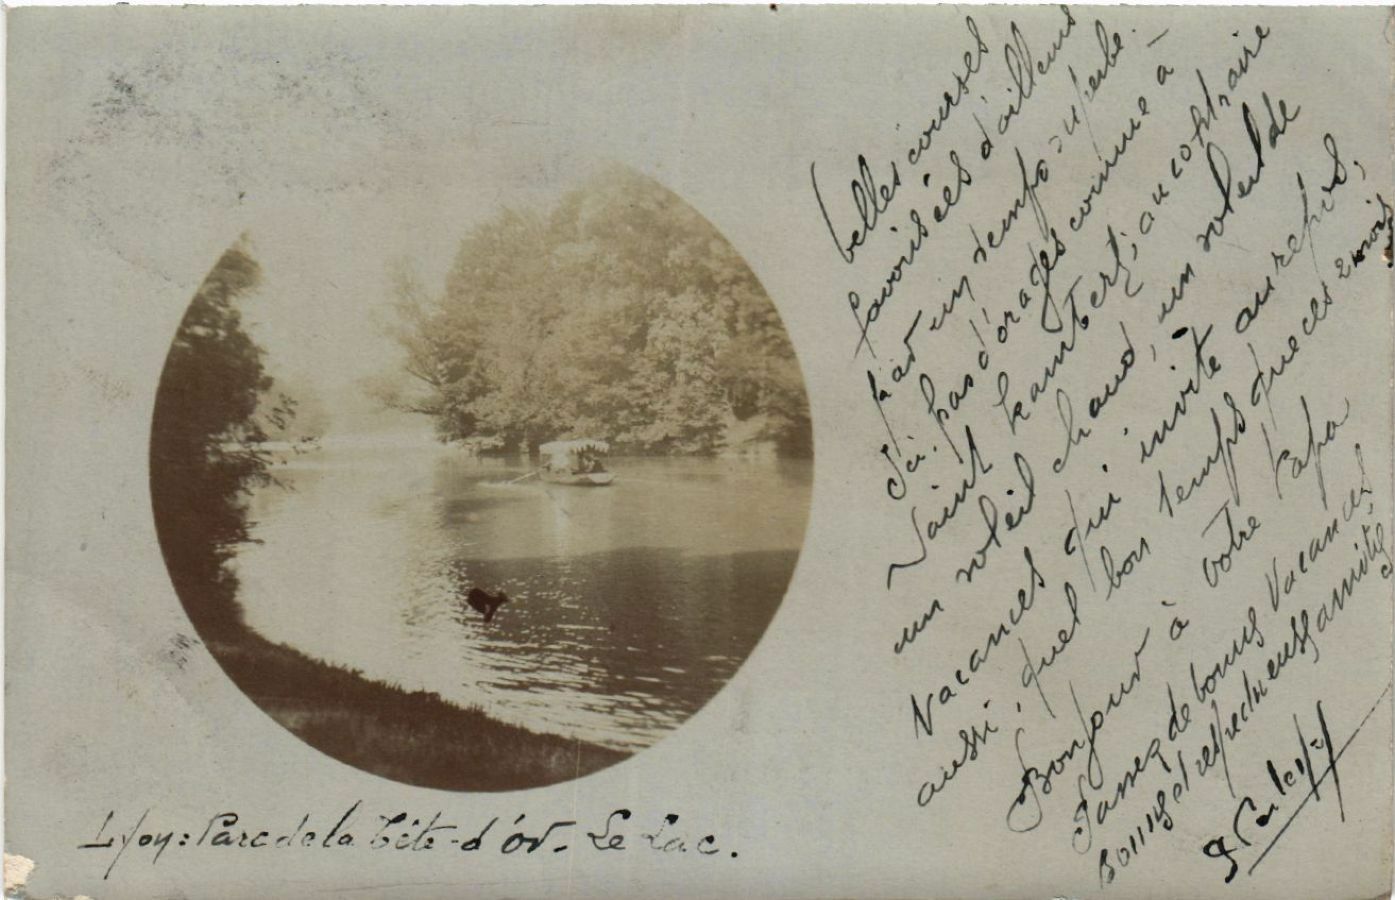 belles courses
favorisées d'ailleurs
par un temps superbe.
Ici, pas d'orages comme à
Saint Rambert, au contraire
un soleil chaud, un soleil de
Vacances qui invite au repos,
aussi, quel bon temps que ces 2 mois
Bonjour à votre Papa
Passez de bonnes Vacances
Bonnes et respectueuses amitiés
Lyon: Parc de la Tête-d'or. Le Lac.